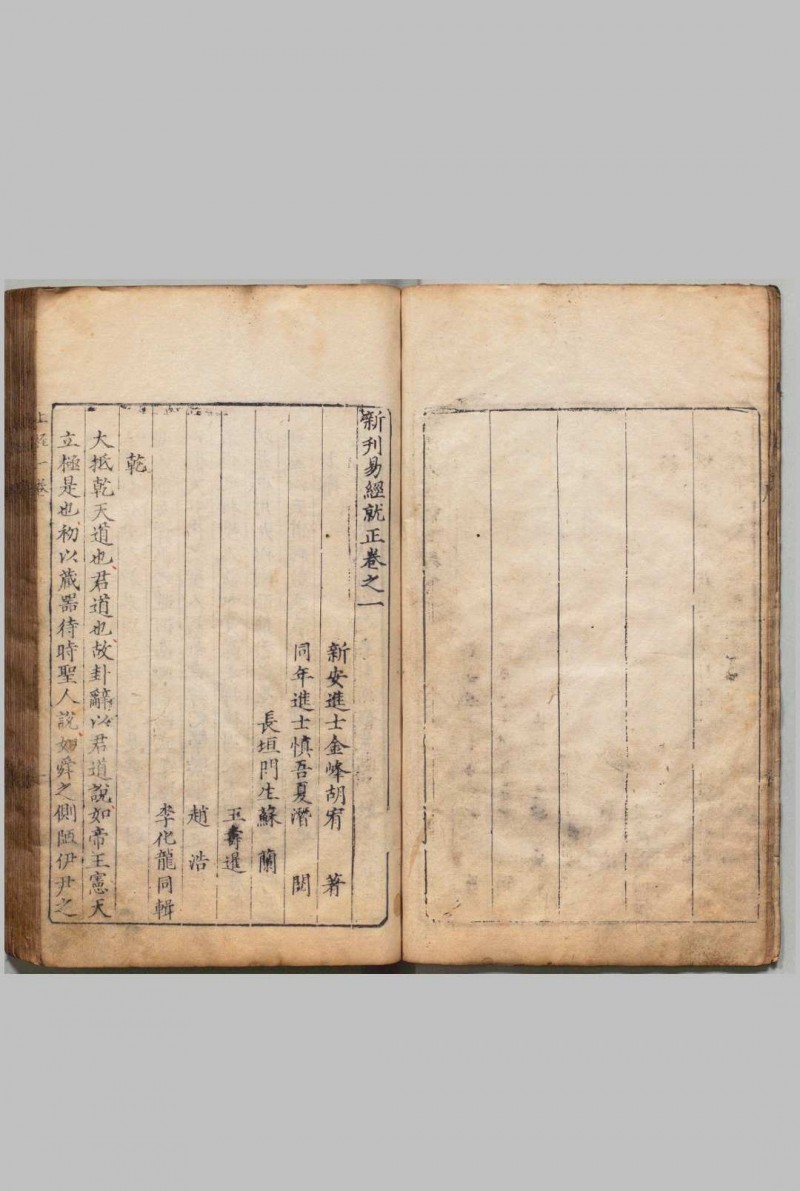 新刊易經就正卷之一
新安進士金峰胡宥 著
同年進士慎吾夏潛 閱
長垣門生蘇蘭
王壽遐
趙浩
李化龍同輯
乾
大抵乾天道也君道也故卦辭以君道說如帝王憲天
立極是也初以藏器待時聖人說如舜之側陋伊尹之